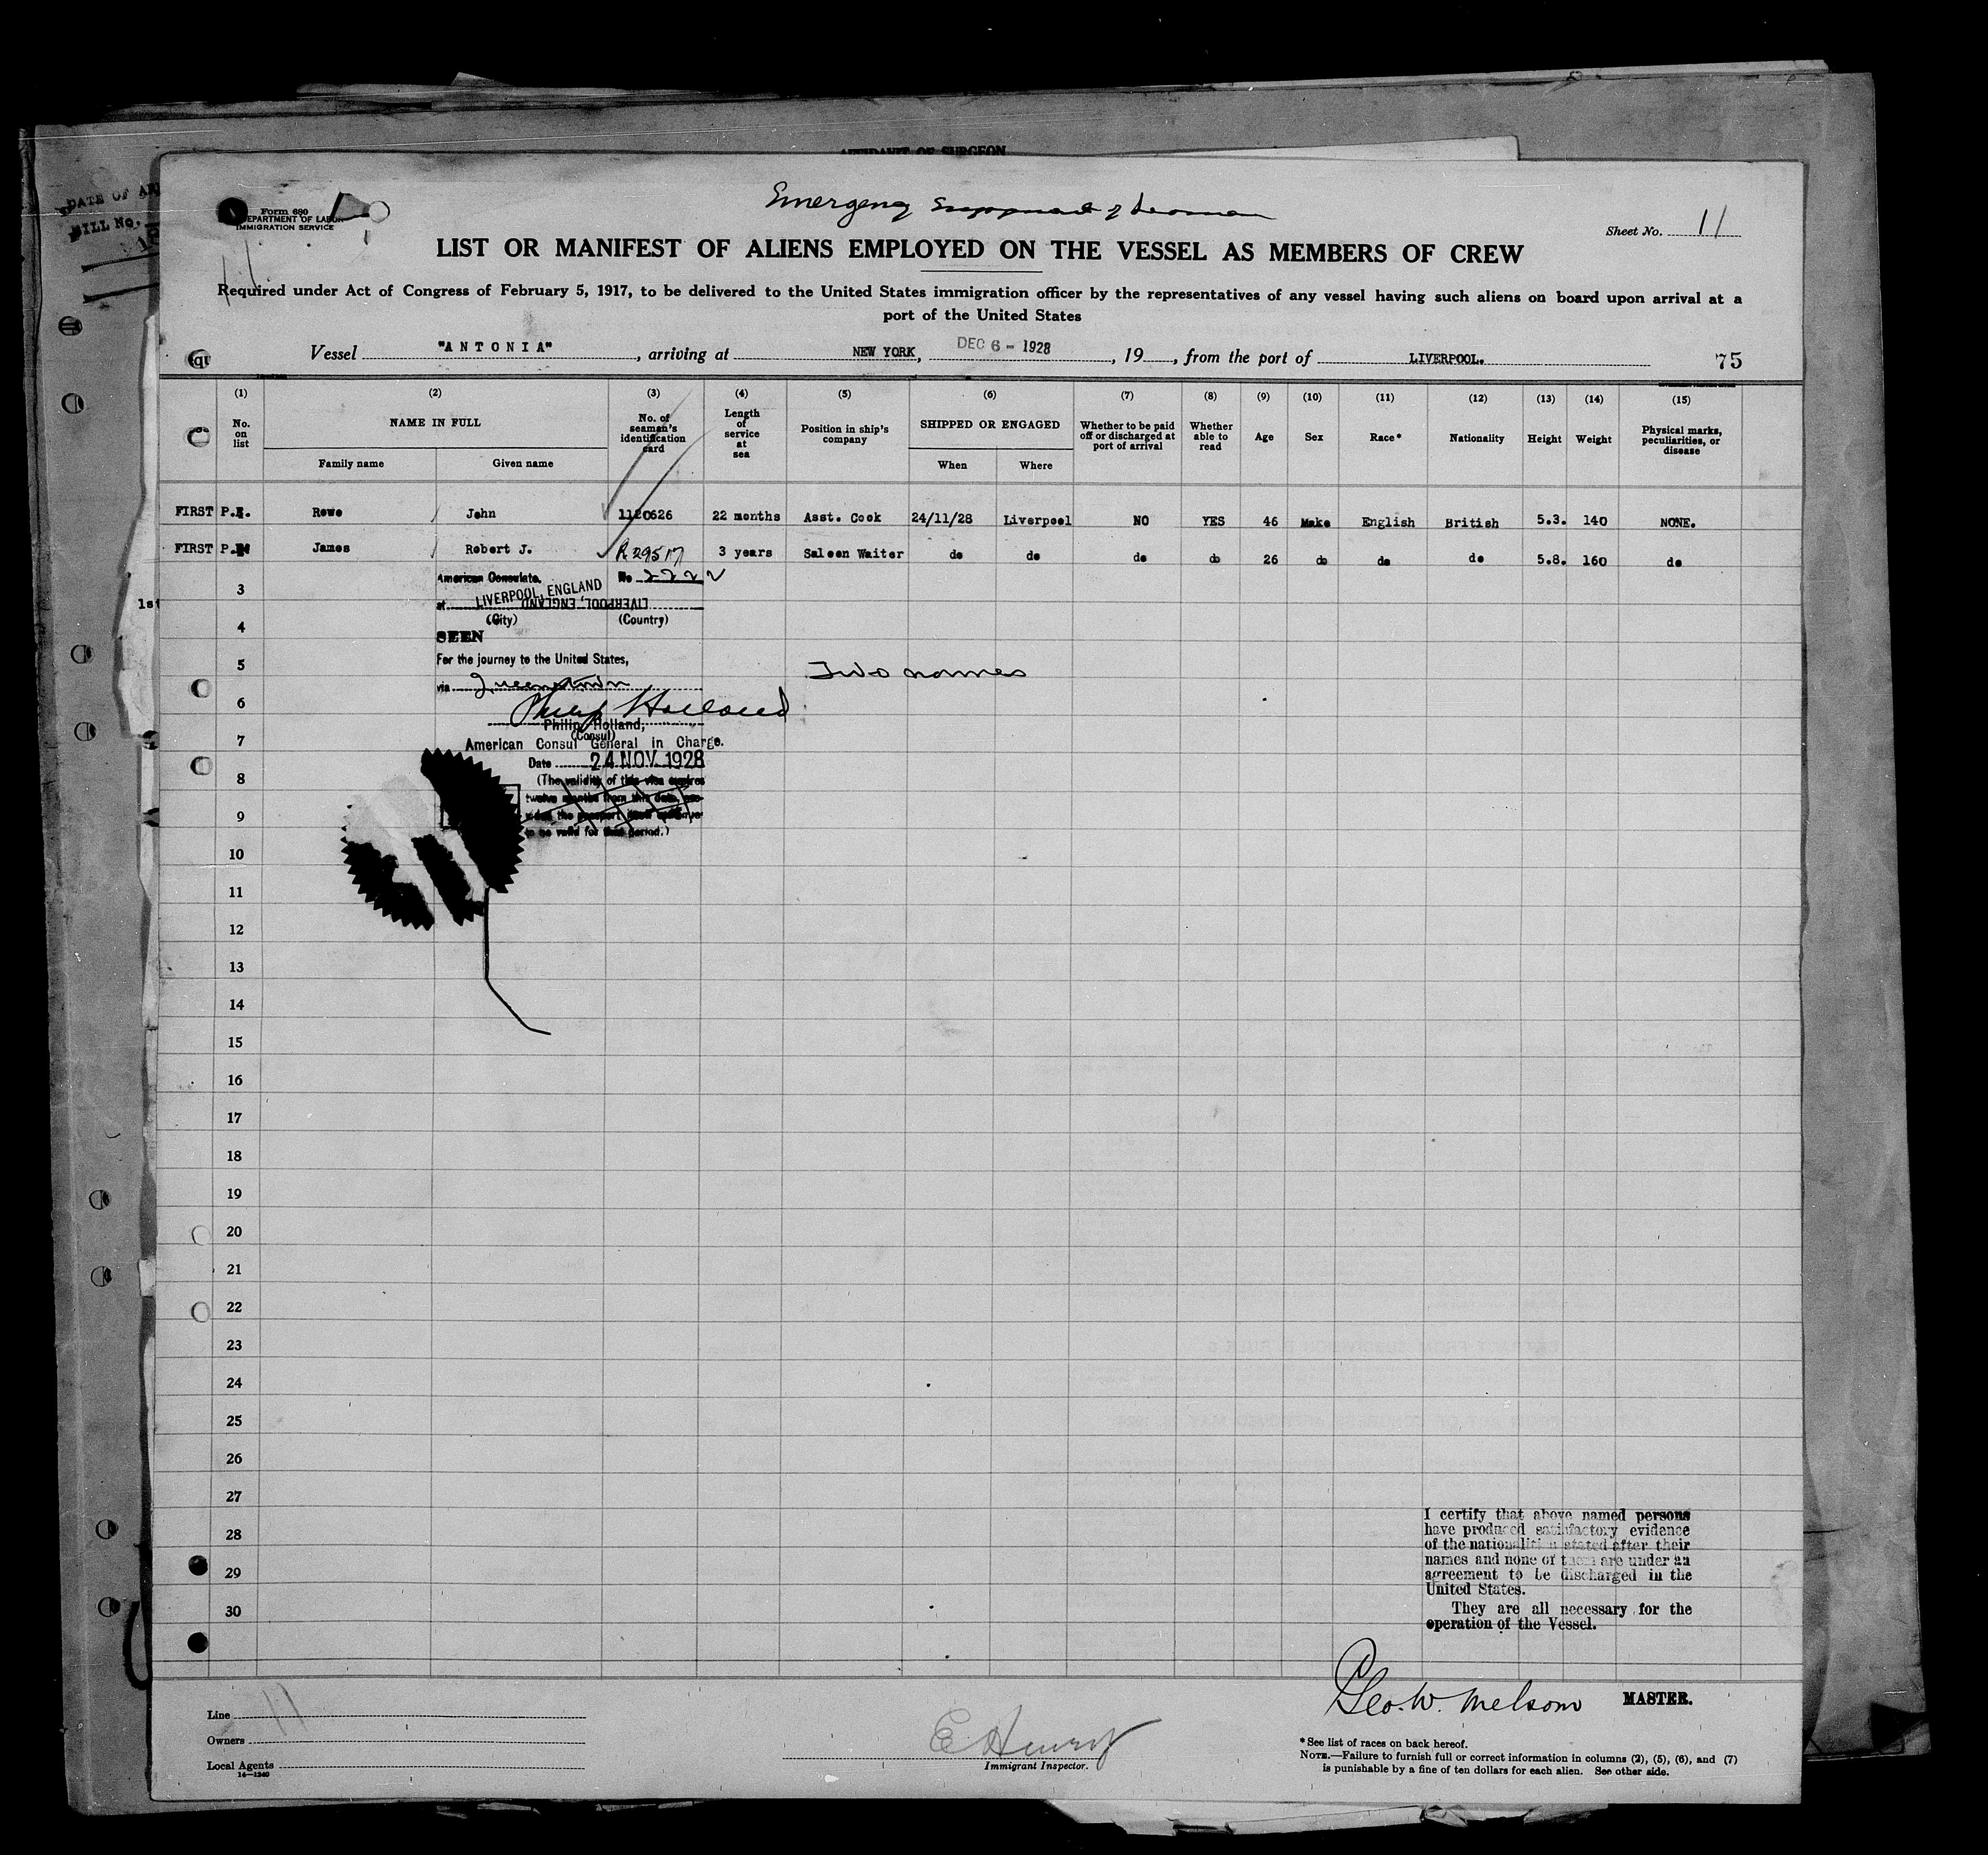 AFFIDAVIT OF SURGEON
DATE OF
BILL No.
Form 680
DEPARTMENT OF LABOR
IMMIGRATION SERVICE
Emergency
Sheet No. 11
LIST OR MANIFEST OF ALIENS EMPLOYED ON THE VESSEL AS MEMBERS OF CREW
Required under Act of Congress of February 5, 1917, to be delivered to the United States immigration officer by the representatives of any vessel having such aliens on board upon arrival at a
port of the United States
Vessel "ANTONIA", arriving at NEW YORK, DEC 6 - 1928, 19, from the port of LIVERPOOL. 75
(1) (2) (3) (4) (5) (6) (7) (8) (9) (10) (11) (12) (13) (14) (15)
No. on list NAME IN FULL No. of seaman's identification card Length of service at sea Position in ship's company SHIPPED OR ENGAGED Whether to be paid off or discharged at port of arrival Whether able to read Age Sex Race* Nationality Height Weight Physical marks, peculiarities, or disease
Family name Given name When Where
FIRST P. Rowe John 1120626 22 months Asst. Cook 24/11/28 Liverpool NO YES 46 Make English British 5.3. 140 NONE.
FIRST P. James Robert J. R29517 3 years Saleen Waiter do do do do 26 do do do 5.8. 160 do
American Consulate, No 2222
1st
3
at LIVERPOOL, ENGLAND LIVERPOOL, ENGLAND
(City) (Country)
4
SEEN
For the journey to the United States,
5 Two names
via Queenstown
6
Philip Holland
Philip Holland,
(Consul)
7
American Consul General in Charge.
Date 24 NOV. 1928
8
(The validity of this visa expires
twelve months from this date, pro-
9
vided the passport itself continues
to be valid for that period.)
10
11
12
13
14
15
16
17
18
19
20
21
22
23
24
25
26
27
28
29
30
I certify that above named persons
have produced satisfactory evidence
of the nationalities stated after their
names and none of them are under an
agreement to be discharged in the
United States.
They are all necessary for the
operation of the Vessel.
Geo. W. Melsom MASTER.
Line
Owners
Local Agents
14—1240
E Henry
Immigrant Inspector.
* See list of races on back hereof.
NOTE.—Failure to furnish full or correct information in columns (2), (5), (6), and (7)
is punishable by a fine of ten dollars for each alien. See other side.